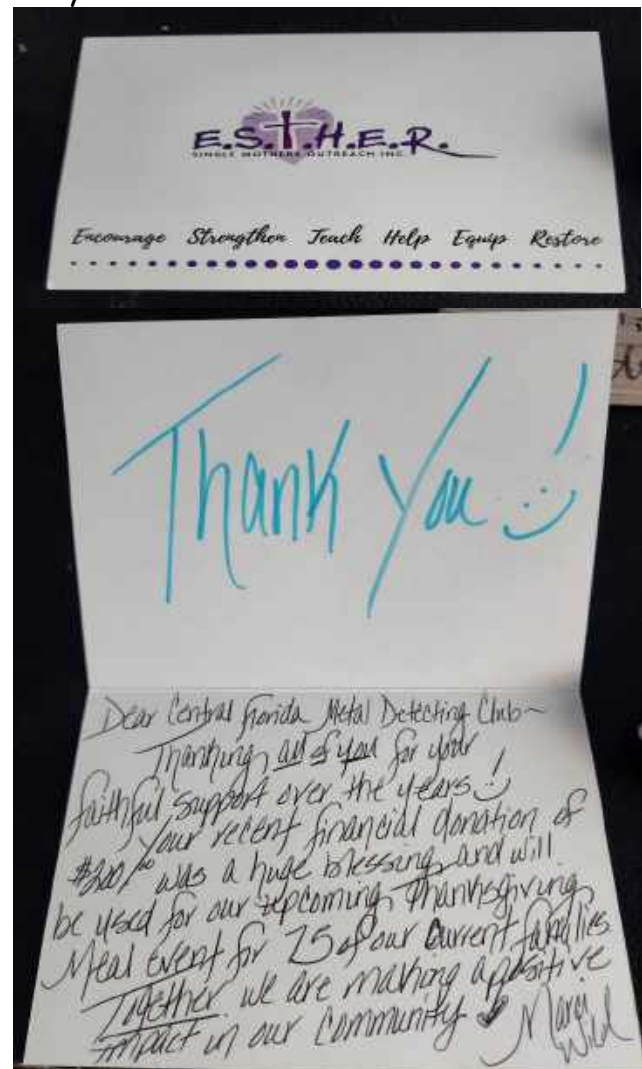 E.S.T.H.E.R.
SINGLE MOTHERS OUTREACH INC.
Encourage Strengthen Teach Help Equip Restore
Thank You!
Dear Central Florida Metal Detecting Club~
Thanking all of you for your
faithful support over the years!
Your recent financial donation of
$200/00 was a huge blessing and will
be used for our upcoming Thanksgiving
Meal Event for 75 of our current families
Together we are making a positive
impact in our community
Marci